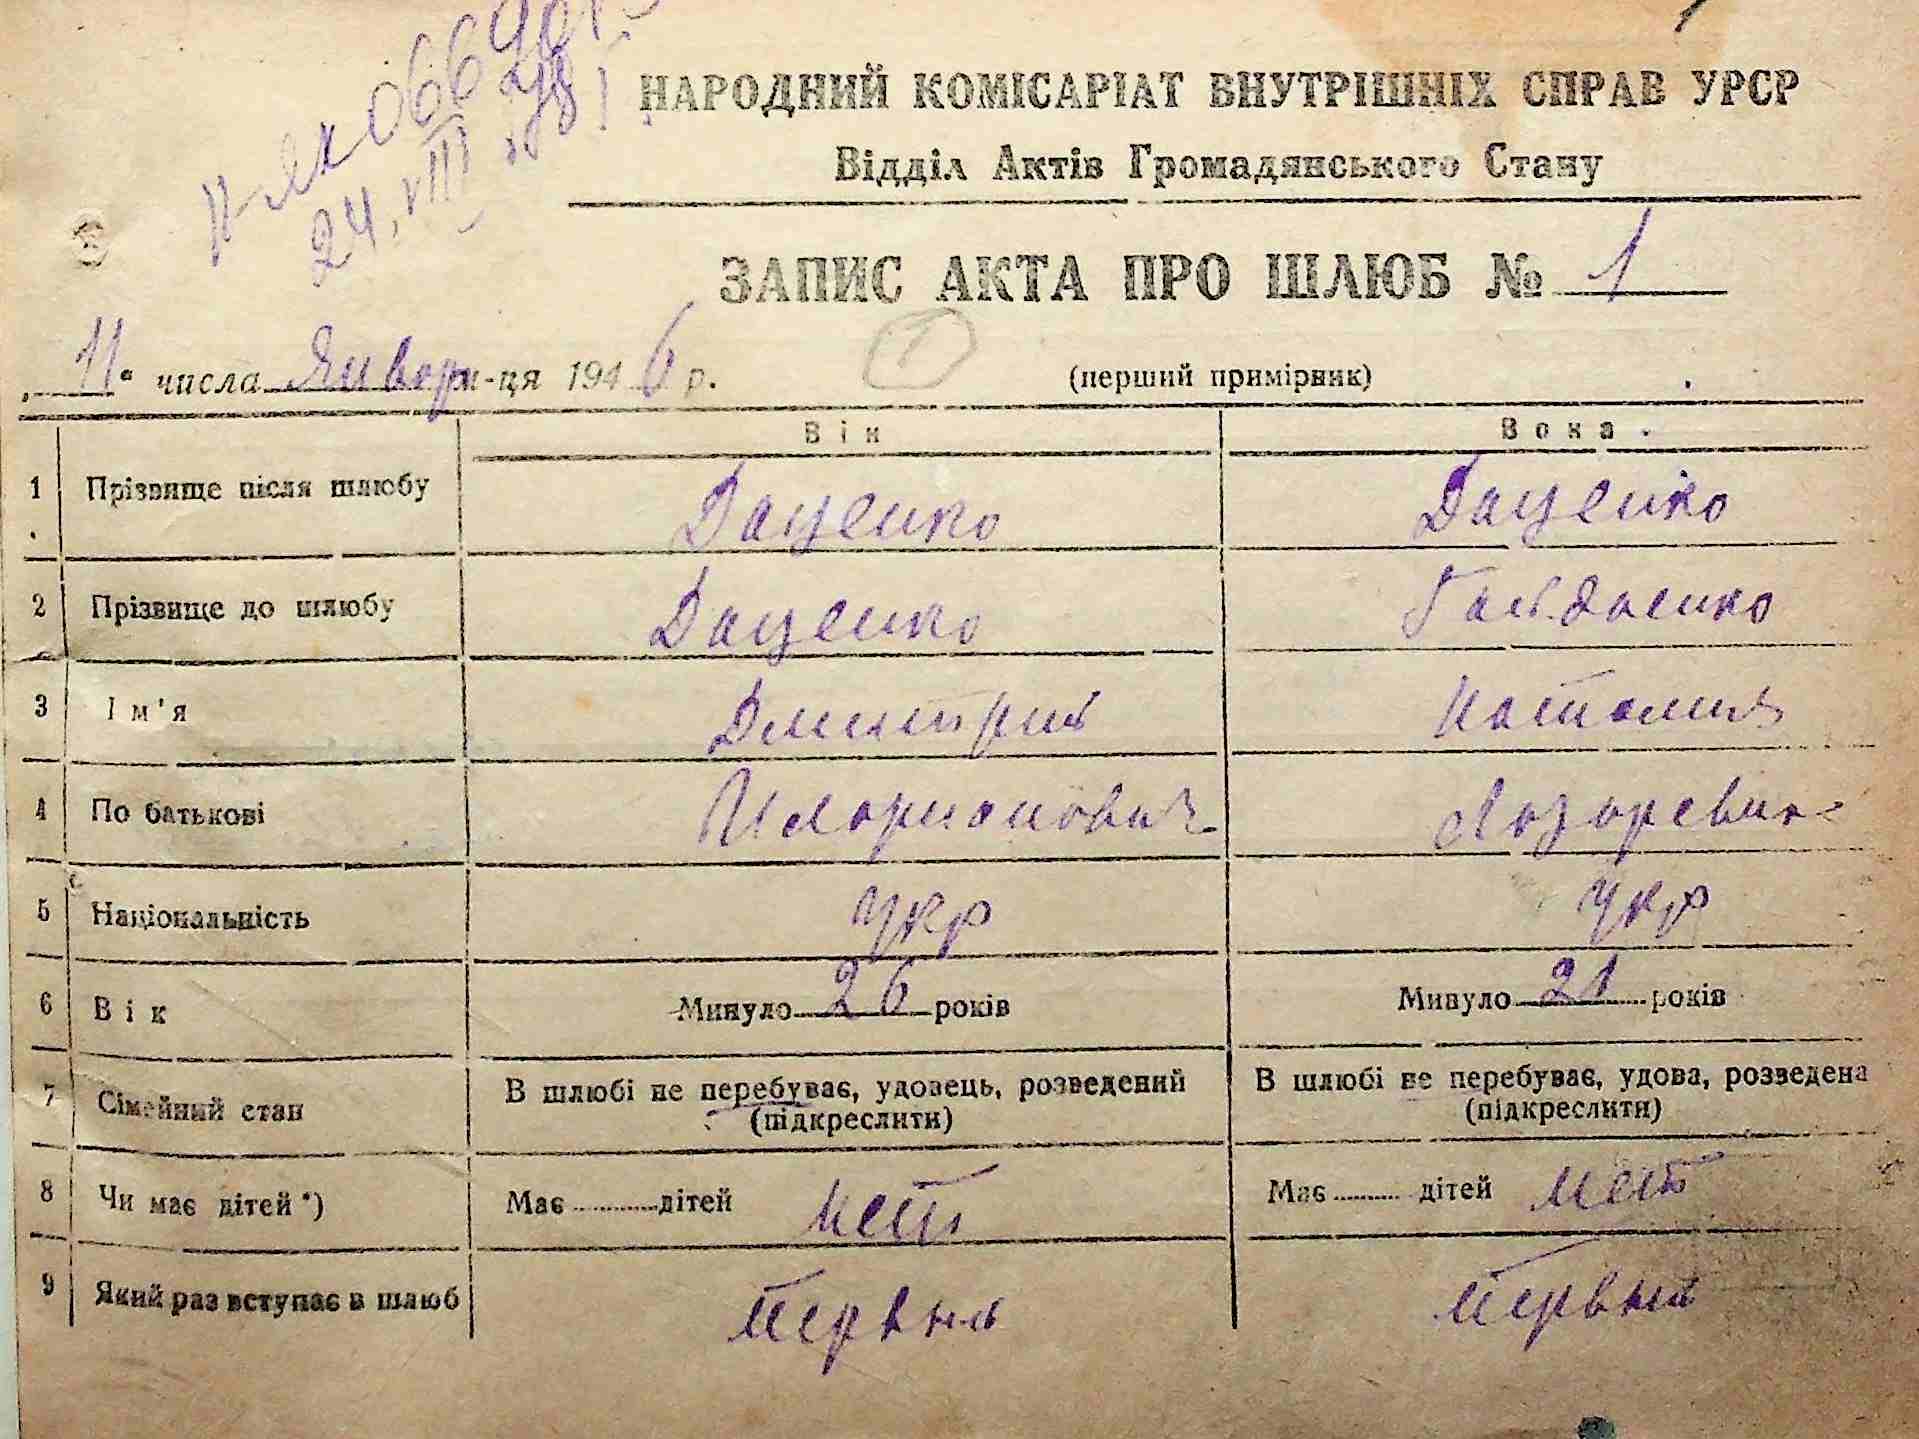 24. VIII
НАРОДНИЙ КОМІСАРІАТ ВНУТРІШНІХ СПРАВ УРСР
Відділ Актів Громадянського Стану
ЗАПИС АКТА ПРО ШЛЮБ № 1
11 числа Январ м-ця 1946 р. (перший примірник)
1
Він Вона
1 Прізвище після шлюбу Даценко Даценко
2 Прізвище до шлюбу Даценко
3 Ім'я Дмитрий Наталия
4 По батькові Иларионович Лазаревна
5 Національність укр укр
6 Вік Минуло 26 років Минуло 21 років
7 Сімейний стан В шлюбі не перебуває, удовець, розведений (підкреслити) В шлюбі не перебуває, удова, розведена (підкреслити)
8 Чи має дітей *) Має дітей нет Має дітей нет
9 Який раз вступає в шлюб Первый Первый